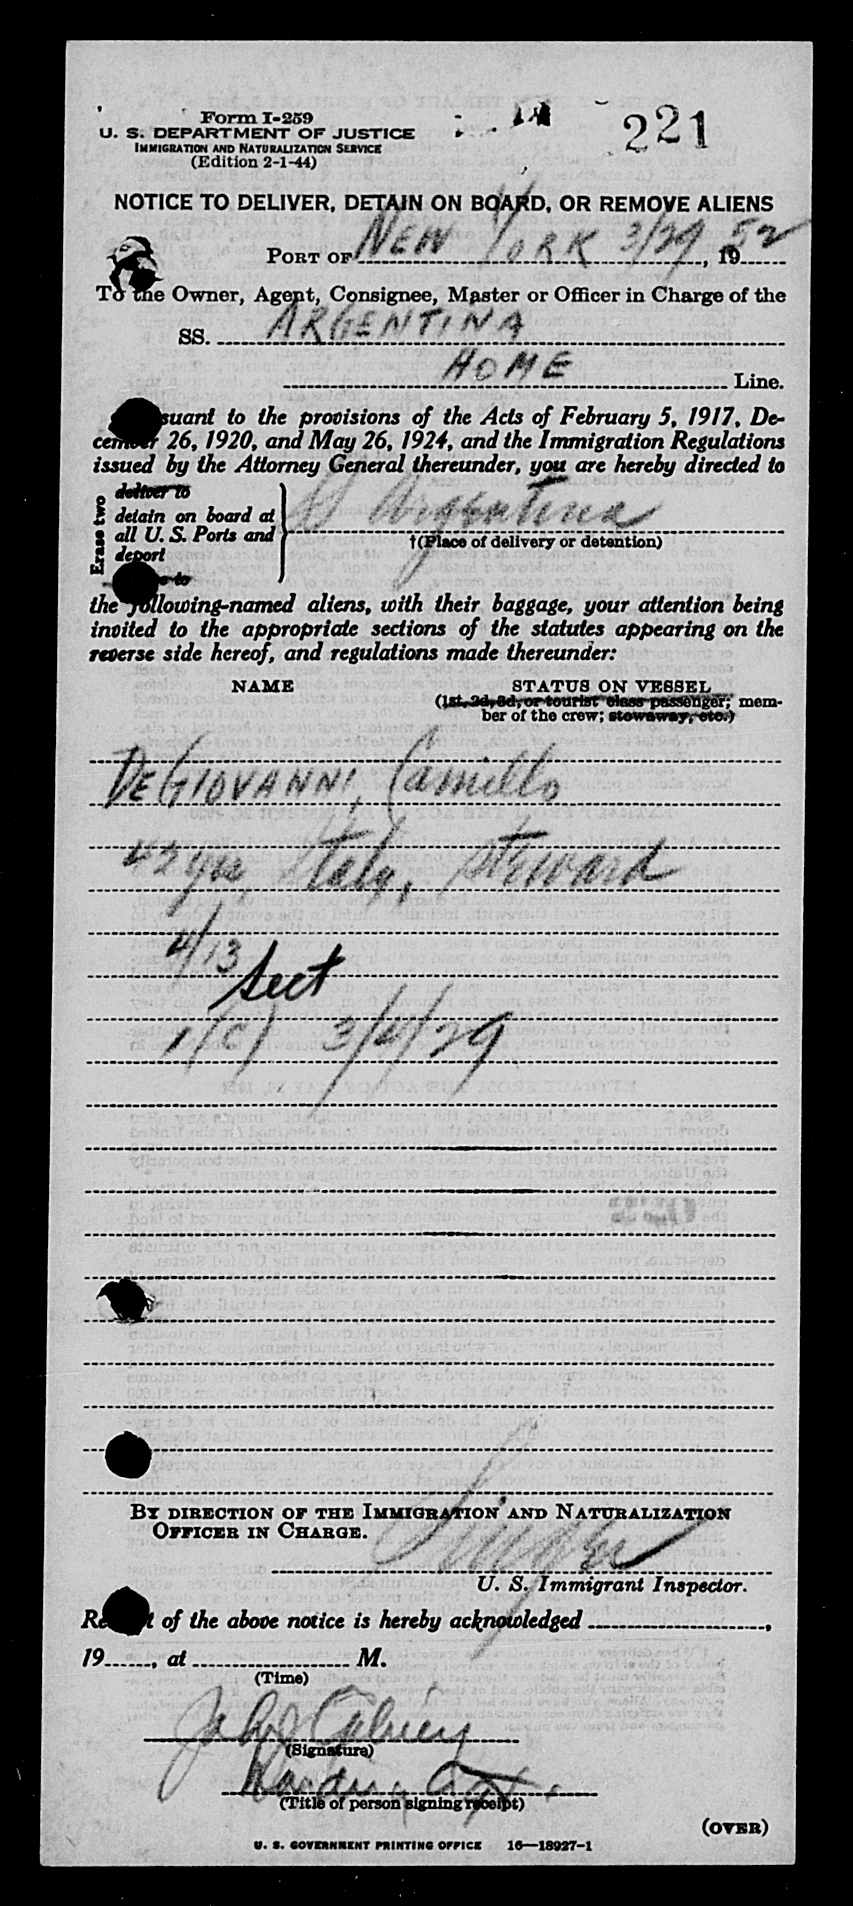 Form I-259
221
U. S. DEPARTMENT OF JUSTICE
IMMIGRATION AND NATURALIZATION SERVICE
(Edition 2-1-44)
NOTICE TO DELIVER, DETAIN ON BOARD, OR REMOVE ALIENS
PORT OF NEW YORK 3/29, 1952
To the Owner, Agent, Consignee, Master or Officer in Charge of the
SS. ARGENTINA
HOME Line.
suant to the provisions of the Acts of February 5, 1917, De-
cember 26, 1920, and May 26, 1924, and the Immigration Regulations
issued by the Attorney General thereunder, you are hereby directed to
Erase two
deliver to
detain on board at
all U. S. Ports and
deport
to
Argentina
†(Place of delivery or detention)
the following-named aliens, with their baggage, your attention being
invited to the appropriate sections of the statutes appearing on the
reverse side hereof, and regulations made thereunder:
NAME STATUS ON VESSEL
(1st, 2d, 3d, or tourist class passenger; mem-
ber of the crew; stowaway, etc.)
DEGIOVANNI, Camillo
42 yrs, Italy, Steward
4/13
Sect
1(C) 3/4/29
BY DIRECTION OF THE IMMIGRATION AND NATURALIZATION
OFFICER IN CHARGE.
U. S. Immigrant Inspector.
Receipt of the above notice is hereby acknowledged ,
19 , at M.
(Time)
John
(Signature)
(Title of person signing receipt)
(OVER)
U. S. GOVERNMENT PRINTING OFFICE 16—18927-1